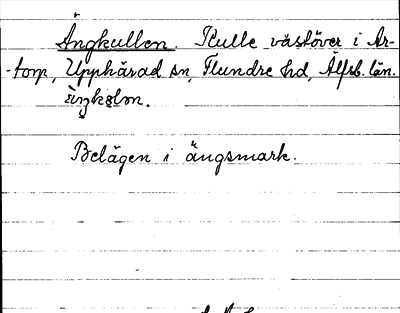 Ängkullen Kulle västöver i Ar-
-torp, Upphärad sn, Flundre hd, Älfsb. län.
Belägen i ängsmark.